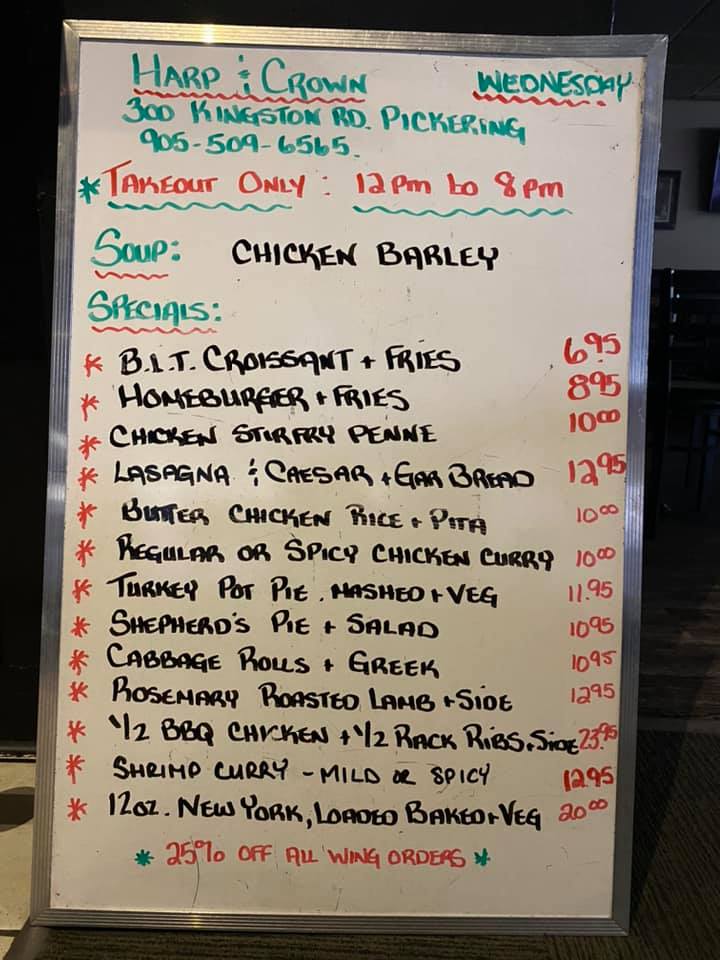 HARP & CROWN WEDNESDAY
300 KINGSTON RD. PICKERING
905-509-6565.
*TAKEOUT ONLY: 12pm to 8pm
SOUP: CHICKEN BARLEY
SPECIALS:
* B.L.T. CROISSANT + FRIES 6.95
* HOMEBURGER + FRIES 8.95
* CHICKEN STIRFRY PENNE 10.00
* LASAGNA & CAESAR + GAR BREAD 12.95
* BUTTER CHICKEN RICE + PITA 10.00
* REGULAR OR SPICY CHICKEN CURRY 10.00
* TURKEY POT PIE. MASHED + VEG 11.95
* SHEPHERD'S PIE + SALAD 10.95
* CABBAGE ROLLS + GREEK 10.95
* ROSEMARY ROASTED LAMB + SIDE 12.95
* 1/2 BBQ CHICKEN + 1/2 RACK RIBS + SIDE 23.95
* SHRIMP CURRY - MILD OR SPICY 12.95
* 12oz. NEW YORK, LOADED BAKED + VEG 20.00
* 25% OFF ALL WING ORDERS *